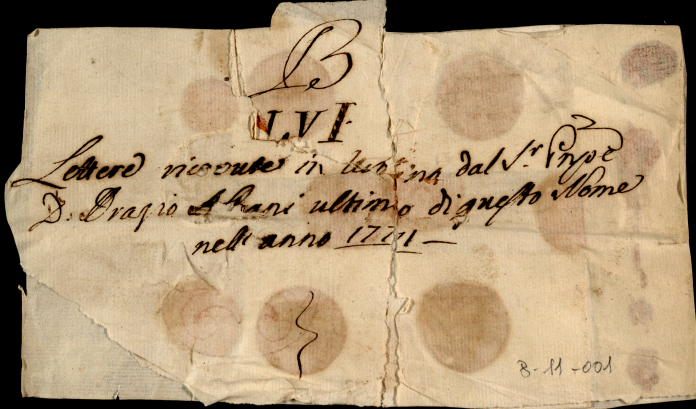 B
LVI
Lettere riceute in dal S.r
D. Orazio Albani ultimo di questo Nome
nell'anno 1771 —
B-11-001